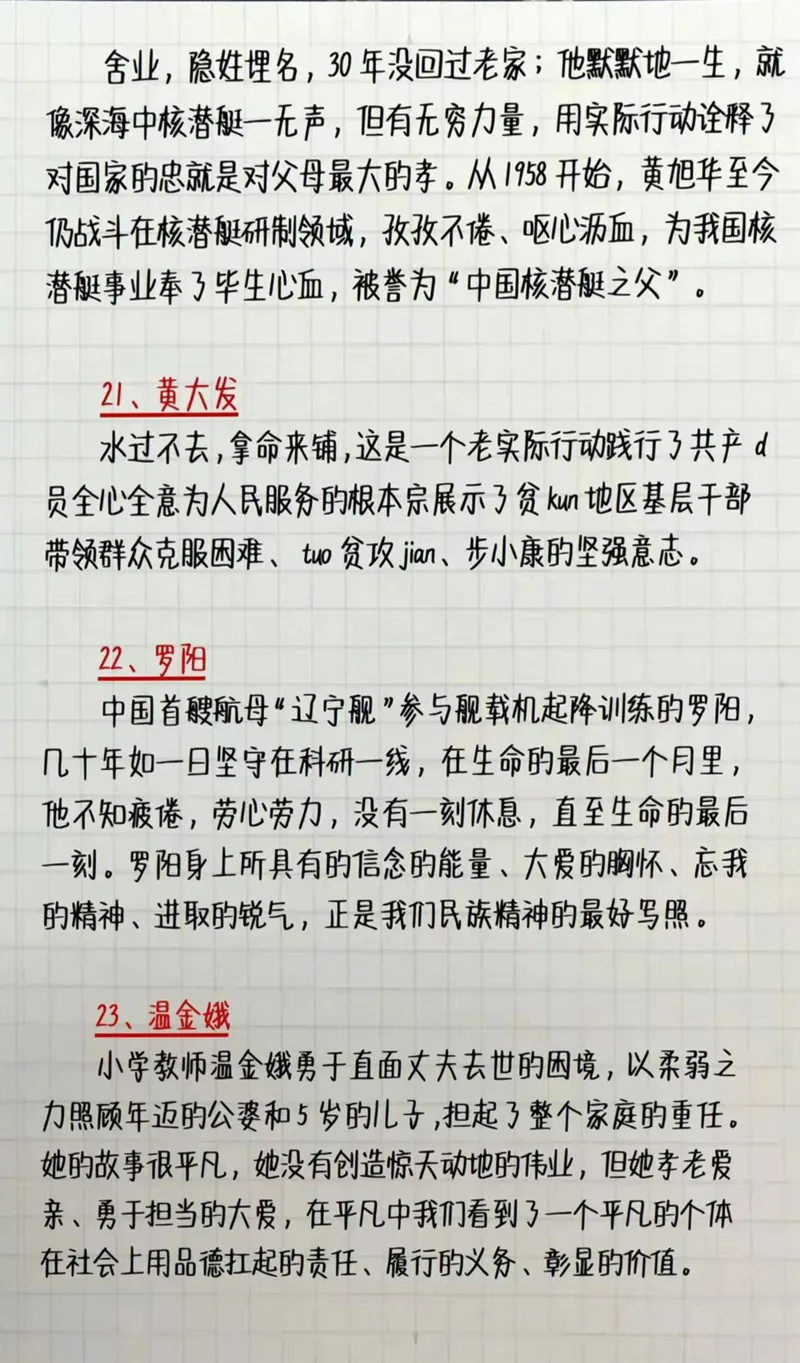 舍业，隐姓埋名，30年没回过老家；他默默地一生，就
像深海中核潜艇一无声，但有无穷力量，用实际行动诠释了
对国家的忠就是对父母最大的孝。从1958开始，黄旭华至今
仍战斗在核潜艇研制领域，孜孜不倦、呕心沥血，为我国核
潜艇事业奉了毕生心血，被誉为“中国核潜艇之父”。
21、黄大发
水过不去，拿命来铺，这是一个老实际行动践行了共产d
员全心全意为人民服务的根本宗展示了贫kun地区基层干部
带领群众克服困难、tuo贫攻jian、步小康的坚强意志。
22、罗阳
中国首艘航母“辽宁舰”参与舰载机起降训练的罗阳，
几十年如一日坚守在科研一线，在生命的最后一个月里，
他不知疲倦，劳心劳力，没有一刻休息，直至生命的最后
一刻。罗阳身上所具有的信念的能量、大爱的胸怀、忘我
的精神、进取的锐气，正是我们民族精神的最好写照。
23、温金娥
小学教师温金娥勇于直面丈夫去世的困境，以柔弱之
力照顾年迈的公婆和5岁的儿子，担起了整个家庭的重任。
她的故事很平凡，她没有创造惊天动地的伟业，但她孝老爱
亲、勇于担当的大爱，在平凡中我们看到了一个平凡的个体
在社会上用品德扛起的责任、履行的义务、彰显的价值。